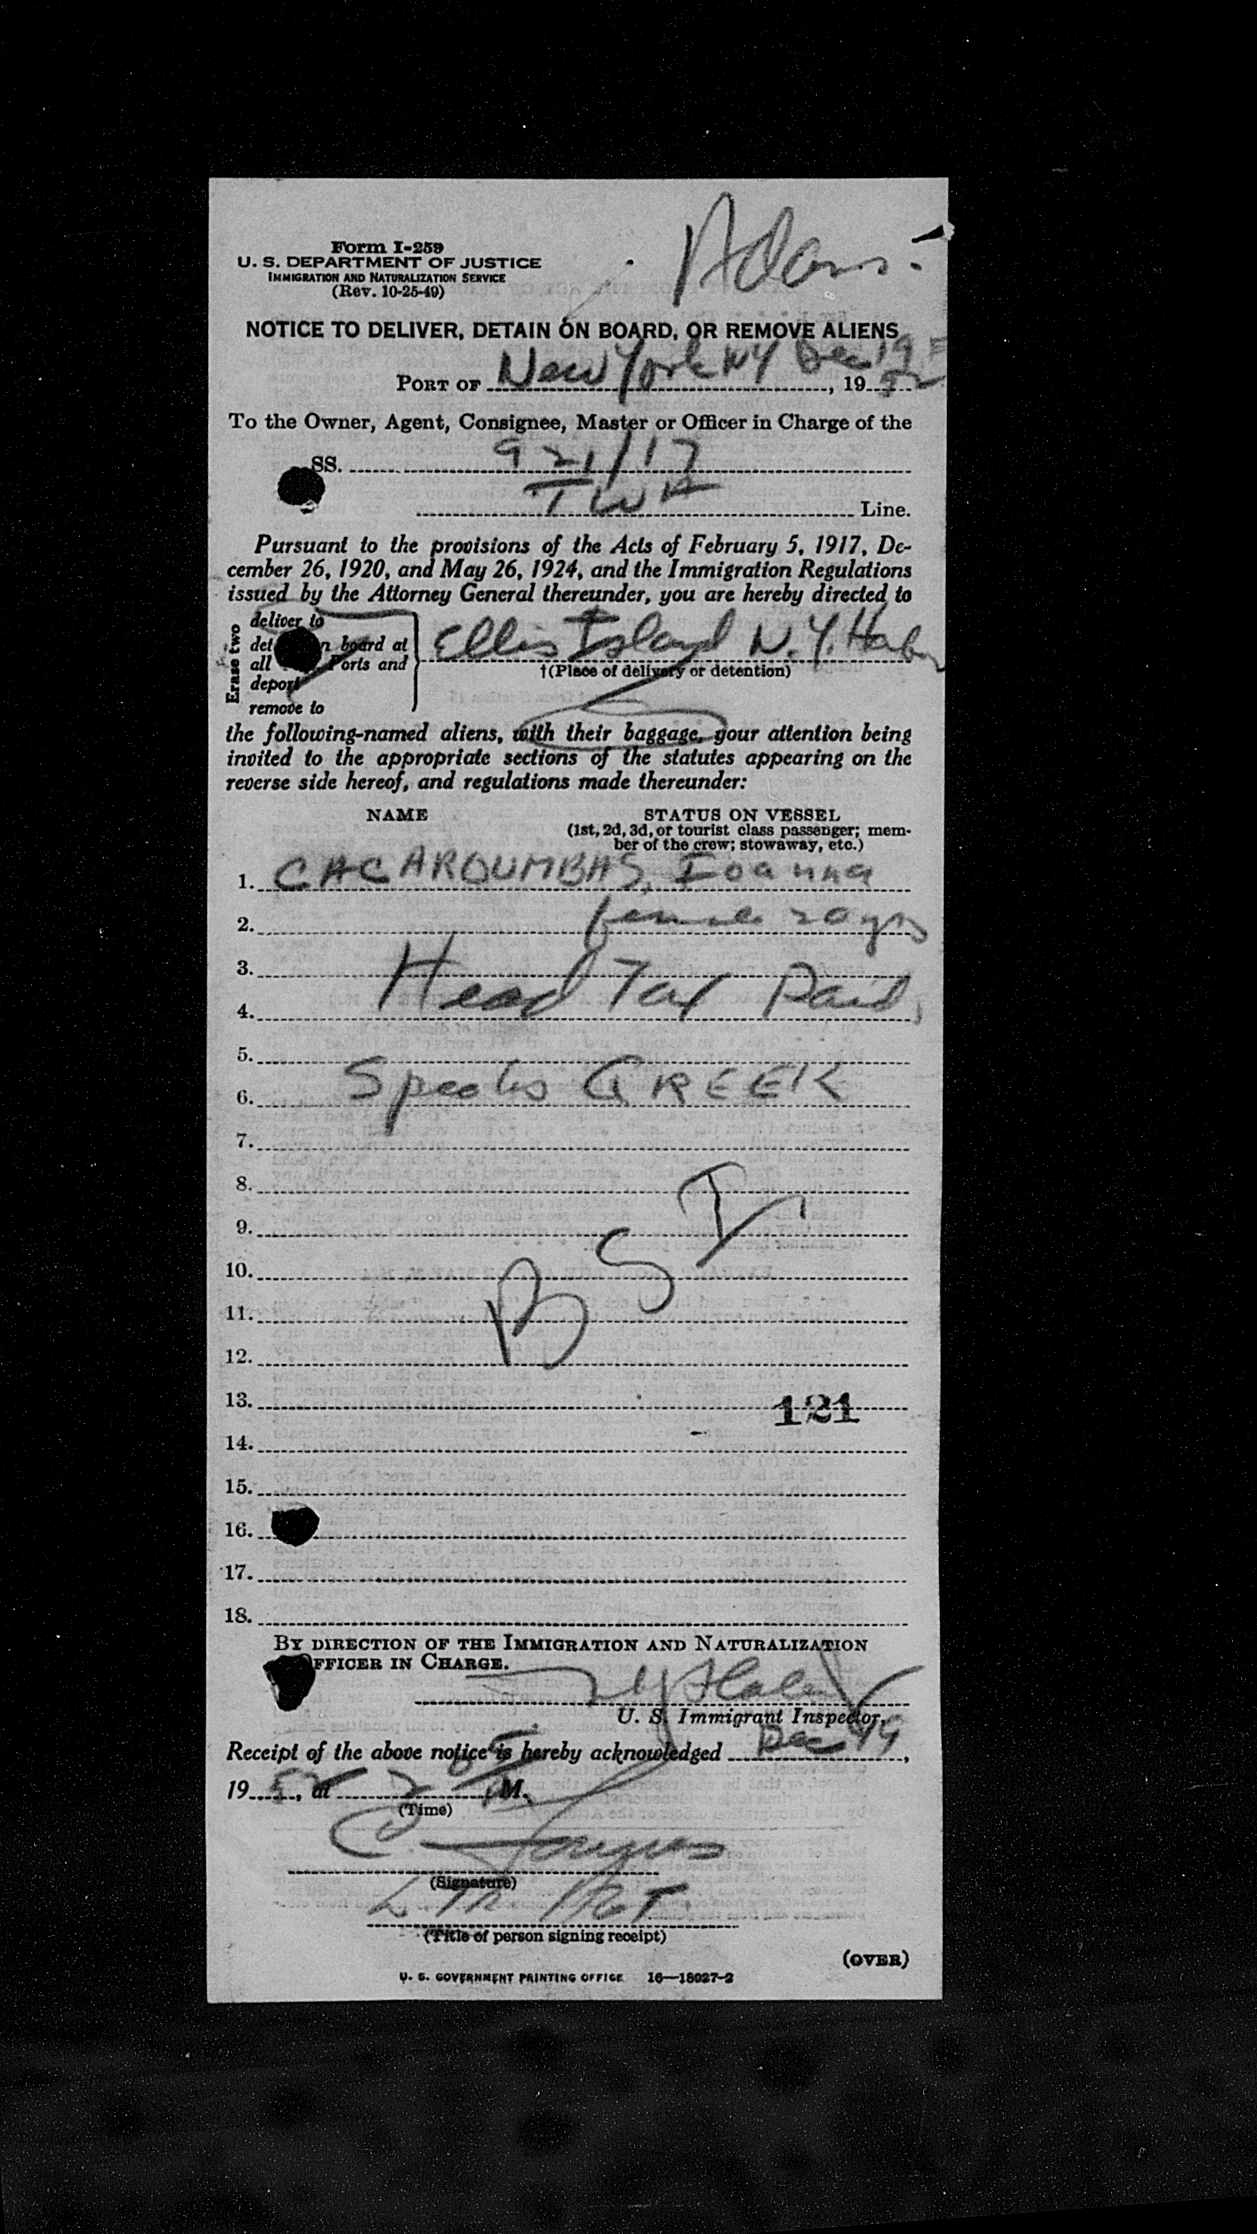 Adams.
Form I-259
U. S. DEPARTMENT OF JUSTICE
IMMIGRATION AND NATURALIZATION SERVICE
(Rev. 10-25-49)
NOTICE TO DELIVER, DETAIN ON BOARD, OR REMOVE ALIENS
PORT OF New York NY Dec 19, 1952
To the Owner, Agent, Consignee, Master or Officer in Charge of the
SS. 921/17
TWA Line.
Pursuant to the provisions of the Acts of February 5, 1917, De-
cember 26, 1920, and May 26, 1924, and the Immigration Regulations
issued by the Attorney General thereunder, you are hereby directed to
Erase two
deliver to
det n board at
all Ports and
deport
remove to
Ellis Island N.Y. Harbor
†(Place of delivery or detention)
the following-named aliens, with their baggage, your attention being
invited to the appropriate sections of the statutes appearing on the
reverse side hereof, and regulations made thereunder:
NAME STATUS ON VESSEL
(1st, 2d, 3d, or tourist class passenger; mem-
ber of the crew; stowaway, etc.)
1. CACAROUMBAS, Ioanna
2. female 20 yrs
3.
Head Tax Paid,
4.
5.
Speaks GREEK
6.
7.
8.
9.
BSI
10.
11.
12.
13. 121
14.
15.
16.
17.
18.
BY DIRECTION OF THE IMMIGRATION AND NATURALIZATION
FFICER IN CHARGE.
U. S. Immigrant Inspector.
Receipt of the above notice is hereby acknowledged Dec 19,
1952, at 2 M.
(Time)
(Signature)
(Title of person signing receipt)
(OVER)
U. S. GOVERNMENT PRINTING OFFICE 16—18027-2